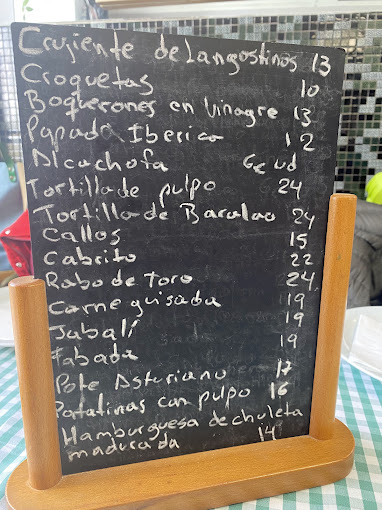 Crujiente de Langostinos 13
Croquetas 10
Boquerones en Vinagre 13
Papada Iberica 12
Alcachofa 6€ ud
Tortilla de pulpo 24
Tortilla de Bacalao 24
Callos 15
Cabrito 22
Rabo de Toro 24
Carne guisada 19
Jabalí 19
Fabada 19
Pote Asturiano 17
Patatinas con pulpo 16
Hamburguesa de chuleta
madurada 14